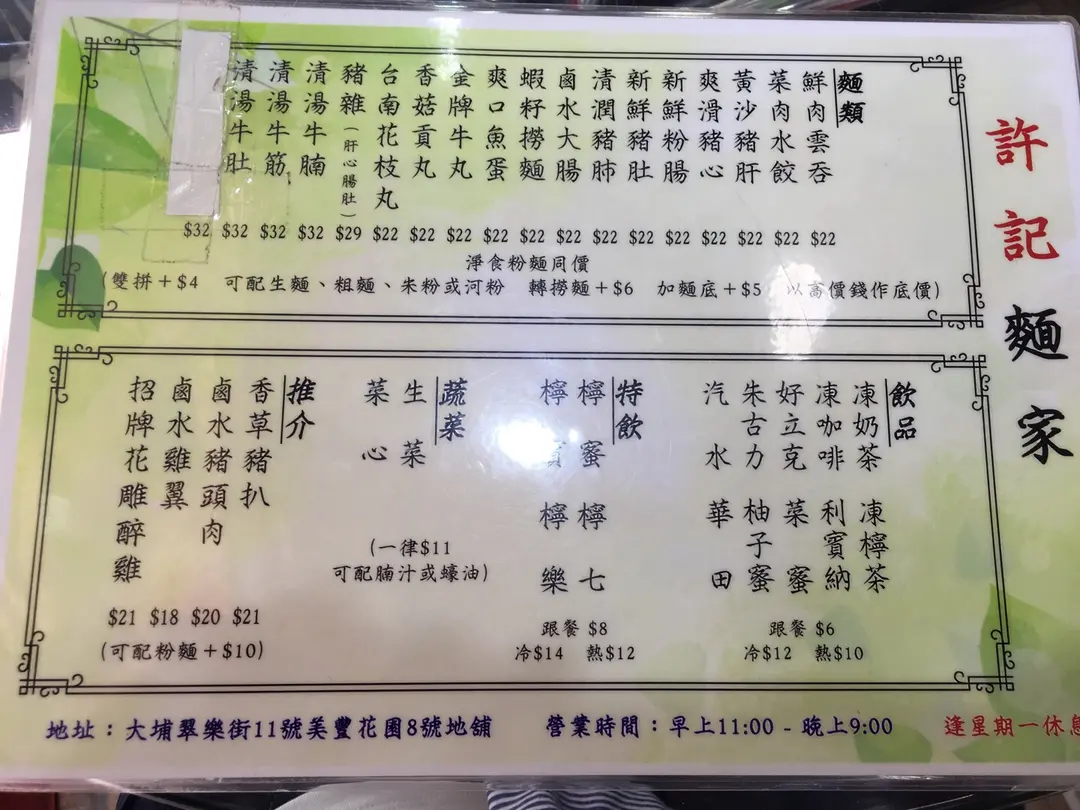 許記麵家
麵類
鮮肉雲吞
菜肉水餃
黃沙豬肝
爽滑豬心
新鮮粉腸
新鮮豬肚
清潤豬肺
鹵水大腸
蝦籽撈麵
爽口魚蛋
金牌牛丸
香菇貢丸
台南花枝丸
豬雜(肝心腸肚)
清湯牛腩
清湯牛筋
清湯牛肚
$32 $32 $32 $32 $29 $22 $22 $22 $22 $22 $22 $22 $22 $22 $22 $22 $22 $22
淨食粉麵同價
(雙拼+$4 可配生麵、粗麵、米粉或河粉 轉撈麵+$6 加麵底+$5 以高價錢作底價)
飲品
凍奶茶 凍檸茶
凍咖啡 利賓納
好立克 菜蜜
朱古力 柚子蜜
汽水 華田
跟餐 $6
冷$12 熱$10
特飲
檸蜜 檸七
檸賓 檸樂
跟餐 $8
冷$14 熱$12
蔬菜
生菜
菜心
(一律$11
可配腩汁或蠔油)
推介
香草豬扒
鹵水豬頭肉
鹵水雞翼
招牌花雕醉雞
$21 $18 $20 $21
(可配粉麵+$10)
地址：大埔翠樂街11號美豐花園8號地舖 營業時間：早上11:00 - 晚上9:00 逢星期一休息